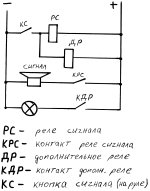 − +
РС
КС
Д,Р
СИГНАЛ
КРС
КДР
РС – реле сигнала
КРС – контакт реле сигнала
ДР – дополнительное реле
КДР – контакт дополн. реле
КС – кнопка сигнала (на руле)